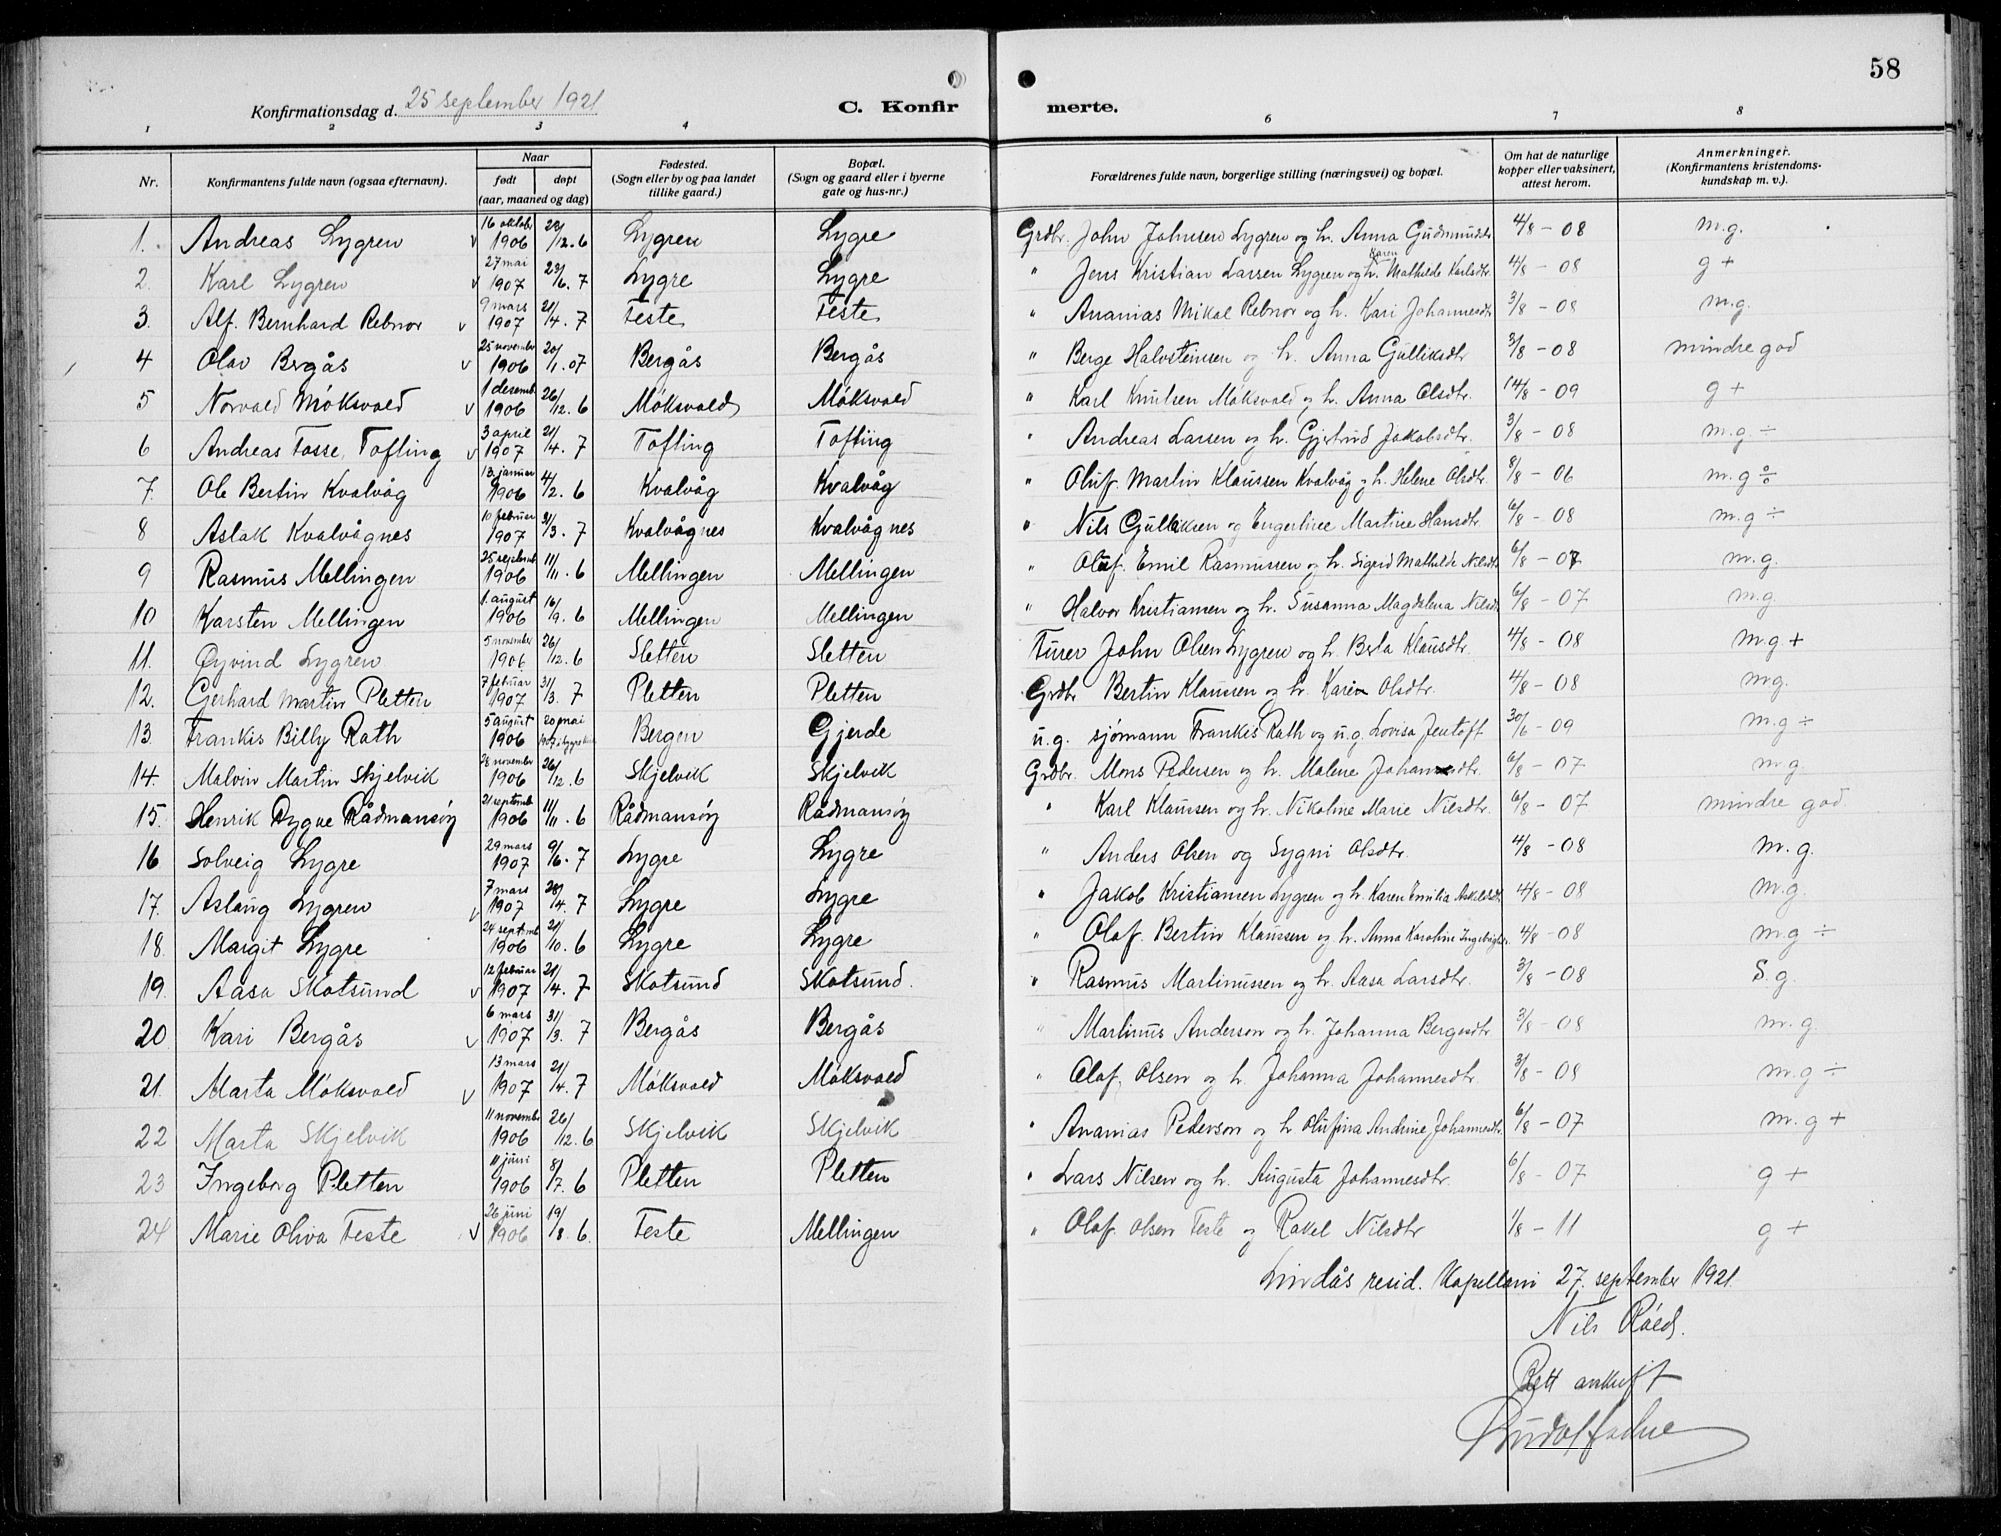 58
Konfirmationsdag d. 25 september 1921
C. Konfir merte.
1 2 3 4 6 7 8
Nr. Konfirmantens fulde navn (ogsaa efternavn). Naar født døpt (aar, maaned og dag) Fødested. (Sogn eller by og paa landet tillike gaard.) Bopæl. (Sogn og gaard eller i byerne gate og hus-nr.) Forældrenes fulde navn, borgerlige stilling (næringsvei) og bopæl. Om hat de naturlige kopper eller vaksinert, attest herom. Anmerkninger. (Konfirmantens kristendoms- kundskap m. v.).
1. Andreas Lygren v 16 oktobr 1906 28/12. 6 Lygren Lygre Grdbr. John Johnsen Lygren og h. Anna Gudmundsdr 4/8 - 08 m.g.
2. Karl Lygren v 27 mai 1907 23/6. 7 Lygre Lygre " Jens Kristian Larsen Lygren og h. Karen Mathilde Karlsdtr. 4/8 - 08 g +
3. Alf. Bernhard Rebnor v 9 mars 1907 21/4. 7 Feste Feste " Ananias Mikal Rebnor og h. Kari Johannesdtr 3/8 - 08 m.g.
4 Olav Bergås v 25 november 1906 20/1. 07 Bergås Bergås " Berge Halvsteinsen og h. Anna Gulliksdtr 3/8 - 08 mindre god
5 Norvald Möksvold v 1 desemb. 1906 26/12. 6 Möksvold Möksvold " Karl Knutsen Möksvold og h. Anna Olsdtr. 14/8 - 09 g +
6 Andreas Fosse, Tofting v 3 april 1907 21/4. 7 Tofting Tofting " Andreas Larsen og h. Gjertrud Jakobsdtr. 3/8 - 08 m.g ÷
7. Ole Bertin Kvalvåg 13 januar 1906 4/2. 6 Kvalvåg Kvalvåg " Oluf. Martin Klaussen Kvalvåg og h. Helene Olsdtr. 8/8 - 06 m.g ÷
8 Aslak Kvalvågnes 10 februar 1907 31/3. 7 Kvalvågnes Kvalvågnes " Nils Gulliksen og Engeline Martine Hansdtr 6/8 - 08 m.g ÷
9 Rasmus Mellingen 25 septemb. 1906 11/11. 6 Mellingen Mellingen " Oluf. Emil Rasmussen og h. Sigrid Mathilde Nilsdtr 6/8 - 07 m.g.
10 Karsten Mellingen 1. august 1906 16/9. 6 Mellingen Mellingen " Halvor Kristiansen og h. Susanna Magdalena Nilsdtr 6/8 - 07 m.g
11. Öyvind Lygren 5 november 1906 26/12. 6 Sletten Sletten John Olsen Lygren og h. Berta Klausdtr. 4/8 - 08 m.g +
12. Gerhard Martin Pletten 7 februar 1907 31/3. 7 Pletten Pletten Grdbr Bertin Klaussen og h. Karen Olsdtr. 4/8 - 08 m.g.
13. Frankis Billy Rath 5 august 1906 20 mai Bergen Gjerde u.g. sjømann Frankis Rath og u.g. Lovisa Jentoft 30/6 - 09 m.g ÷
14. Malvin Martin Skjelvik 28 november 1906 26/12. 6 Skjelvik Skjelvik Grdbr. Mons Pedersen og h. Malene Johannesdtr. 6/8 - 07 m.g.
15. Henrik Dygve Rådmansöy 21 septemb 1906 11/11. 6 Rådmansöy Rådmansöy " Karl Klaussen og h. Nikoline Marie Nilsdtr. 6/8 - 07 mindre god
16 Solveig Lygre 29 mars 1907 9/6. 7 Lygre Lygre " Anders Olsen og Sygni Olsdtr. 4/8 - 08 m.g.
17. Aslaug Lygren v 7 mars 1907 28/4. 7 Lygre Lygre " Jakob Kristiansen Lygren og h. Karen Emilia Askildsdtr 4/8 - 08 m.g.
18. Margit Lygre 24 septmb 1906 21/10. 6 Lygre Lygre " Olaf. Bertin Klaussen og h. Anna Karoline Ingebrigtsdtr. 4/8 - 08 m.g ÷
19. Aasa Skotsund v 12 februar 1907 21/4. 7 Skotsund Skotsund. " Rasmus Martinussen og h. Aasa Larsdtr. 3/8 - 08 S.g.
20. Kari Bergås v 6 mars 1907 31/3. 7 Bergås Bergås " Martinus Anderson og h. Johanna Bergesdtr 3/8 - 08 m.g.
21. Marta Möksvold v 13 mars 1907 21/4. 7 Möksvold Möksvold " Olaf. Olsen og h. Johanna Johannesdtr. 3/8 - 08 m.g ÷
22 Marta Skjelvik 11 novembr 1906 26/12. 6 Skjelvik Skjelvik " Ananias Pederson og h Olufina Andrine Johannesdtr. 6/8 - 07 m.g +
23 Ingeborg Pletten 11 juni 1906 8/7. 6 Pletten Pletten " Lars Nilsen og h. Augusta Johannesdtr. 6/8 - 07 g +
24 Marie Oliva Feste v 26 juni 1906 19/8. 6. Feste Mellingen " Olaf. Olsen Feste og Rakel Nilsdtr 1/8 - 11 g +
Lindås resid. Kapellani 27. september 1921.
Nils Röed.
Rett avskrift